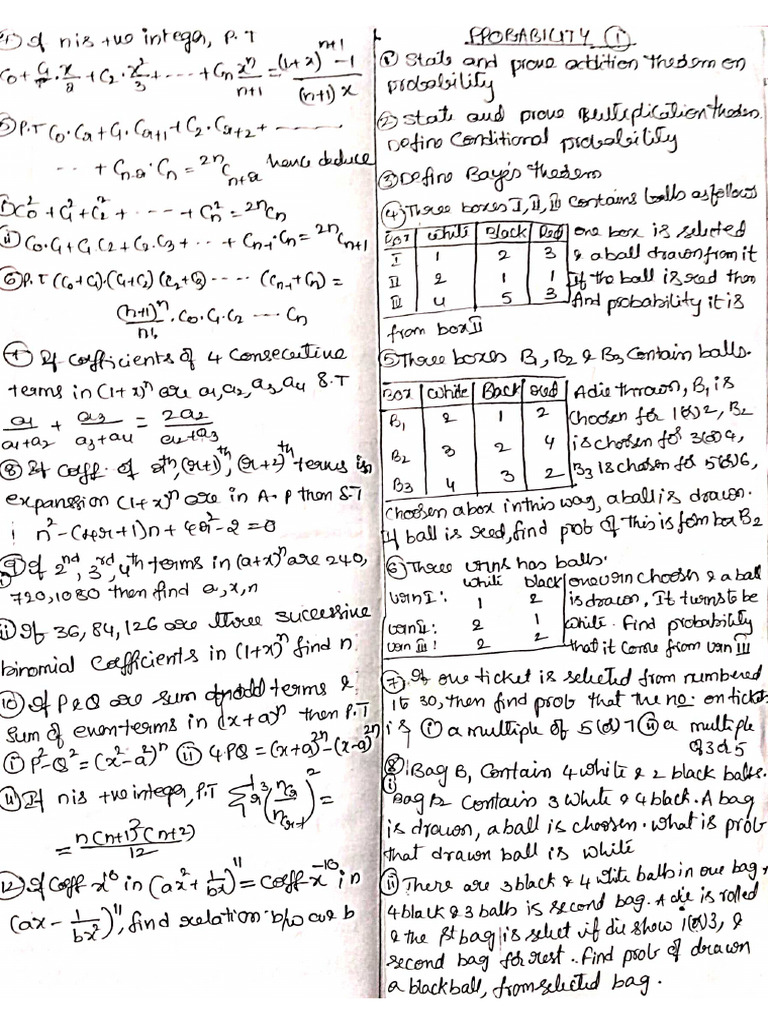 4) If n is +ve integer, P.T
C₀ + C₁/1 · x/2 + C₂ · x²/3 + ---- + Cₙ xⁿ/n+1 = (1+x)ⁿ⁺¹ - 1 / (n+1) x
5) P.T C₀·Cr + C₁·Cr+1 + C₂·Cr+2 + --------
·· + Cn-r·Cn = 2nCn+r hence deduce
i) C₀² + C₁² + C₂² + ---- + Cn² = 2nCn
ii) C₀·C₁ + C₁C₂ + C₂·C₃ + ·· + Cn-1·Cn = 2nCn+1
6) P.T (C₀+C₁)·(C₁+C₂) (C₂+C₃) ---- (Cn-1+Cn) =
(n+1)ⁿ/n! · C₀·C₁·C₂ --- Cn
7) If coefficients of 4 consecutive
terms in (1+x)ⁿ are a₁, a₂, a₃, a₄ S.T
a₁/a₁+a₂ + a₃/a₃+a₄ = 2a₂/a₂+a₃
8) If coeff. of rth, (r+1)th, (r+2)th terms in
expansion (1+x)ⁿ are in A.P then S.T
n² - (4r+1)n + 4r² - 2 = 0
9) If 2nd, 3rd, 4th terms in (a+x)ⁿ are 240,
i) 720, 1080 then find a, x, n
ii) If 36, 84, 126 are three successive
binomial coefficients in (1+x)ⁿ find n
10) If P & Q are sum of odd terms &
sum of even terms in (x+a)ⁿ then P.T
i) P²-Q² = (x²-a²)ⁿ ii) 4PQ = (x+a)²ⁿ - (x-a)²ⁿ
11) If n is +ve integer, P.T Σ r³ (nCr/nCr-1)² =
= n(n+1)²(n+2)/12
12) If Coeff x¹⁰ in (ax² + 1/bx)¹¹ = coeff x⁻¹⁰ in
(ax - 1/bx²)¹¹, find relation b/w a & b
PROBABILITY 1
1) State and prove addition theorem on
probability
2) State and prove Multiplication theorem
Define Conditional probability
3) Define Baye's theorem
4) Three boxes I, II, III contains balls as follows
Box White Black Red one box is selected
I 1 2 3 & a ball drawn from it
II 2 1 1 If the ball is red then
III 4 5 3 find probability it is
from box II
5) Three boxes B₁, B₂ & B₃ Contain balls.
Box White Back red A die thrown, B₁ is
B₁ 2 1 2 Choosen for 1(or)2, B₂
B₂ 3 2 4 is choosen for 3(or)4,
B₃ 4 3 2 B₃ is chosen for 5(or)6,
Choosen a box in this way, a ball is drawn.
If ball is red, find prob of this is from box B₂
6) Three urns has balls.
white black one urn choosen & a ball
urn I: 1 2 is drawn, It turns to be
urn II: 2 1 white. Find probability
urn III: 2 2 that it come from urn III
7) If one ticket is selected from numbered
1 to 30, then find prob that the no. on ticket
is i) a multiple of 5 (or) 7 ii) a multiple
of 3 or 5
8) Bag B₁ Contain 4 white & 2 black balls.
i) Bag B₂ Contain 3 white & 4 black. A bag
is drawn, a ball is choosen. what is prob
that drawn ball is white
ii) There are 3 black & 4 white balls in one bag,
4 black & 3 balls is second bag. A die is rolled
& the 1st bag is select if die show 1(or)3, &
second bag for rest. Find prob of drawn
a black ball, from selected bag.